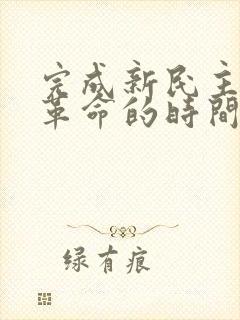 完成新民主
革命的時間
绿有痕